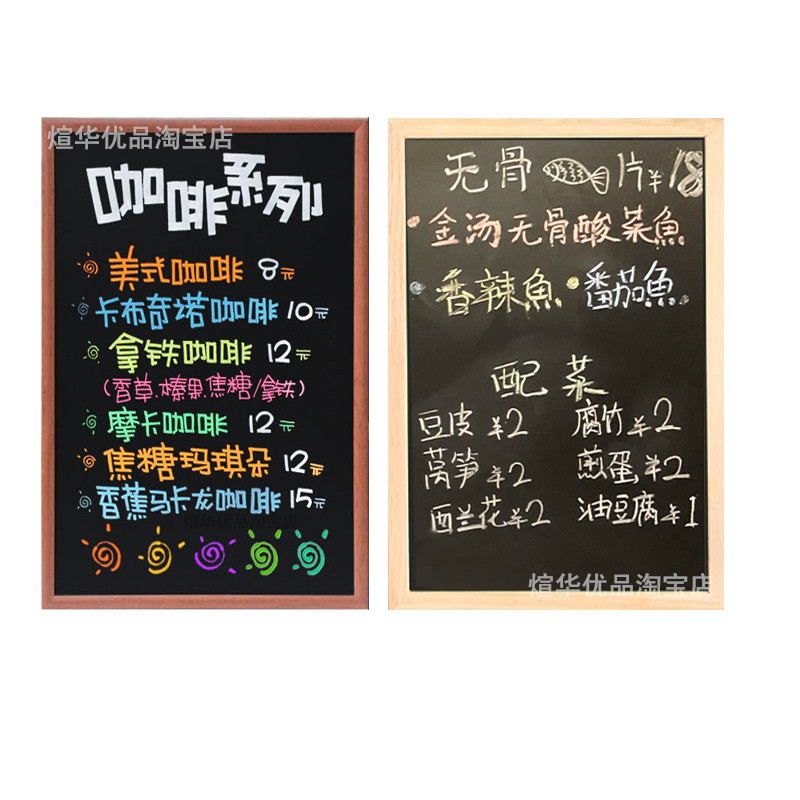 煊华优品淘宝店
咖啡系列
美式咖啡 8元
卡布奇诺咖啡 10元
拿铁咖啡 12元
(香草.榛果.焦糖/拿铁)
摩卡咖啡 12元
焦糖玛琪朵 12元
香蕉马卡龙咖啡 15元
煊华优品淘宝店
无骨 1片¥18
金汤无骨酸菜魚
香辣魚 番茄魚
配菜
豆皮 ¥2 腐竹 ¥2
莴笋 ¥2 煎蛋 ¥2
西兰花 ¥2 油豆腐 ¥1
煊华优品淘宝店